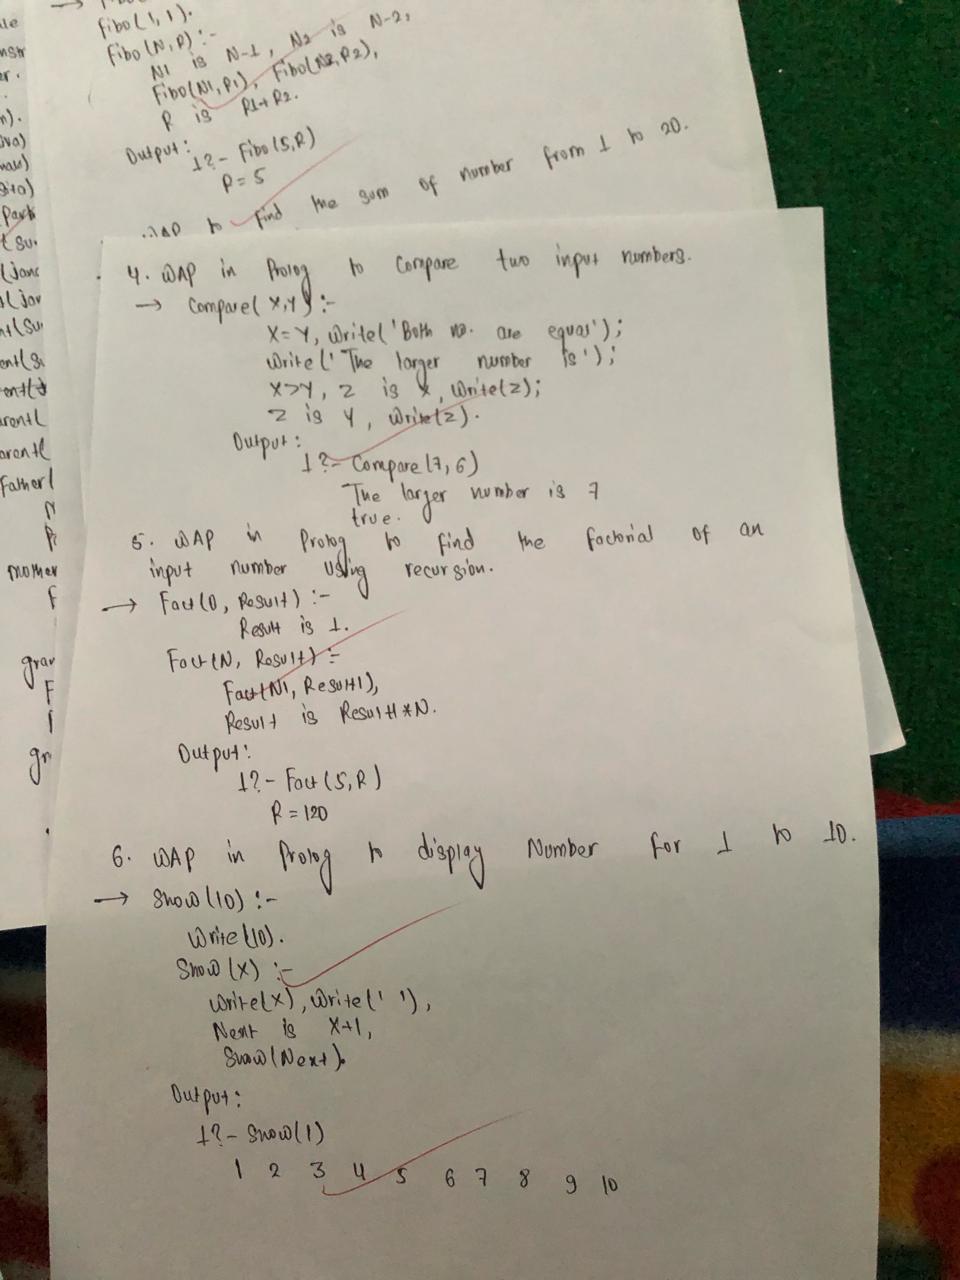 Fibo(1,1).
Fibo(N,R):-
N1 is N-1, N2 is N-2,
Fibo(N1,R1), Fibo(N2,R2),
R is R1+R2.
Output:
1?- Fibo(5,R)
R=5
WAP to find the sum of number from 1 to 20.
4. WAP in Prolog to Compare two input numbers.
→ Compare(X,Y):-
X=Y, write('Both no. are equas');
write('The larger number is');
X>Y, Z is X, write(Z);
Z is Y, write(Z).
Output:
1?- Compare(7,6)
The larger number is 7
true.
5. WAP in Prolog to find the factorial of an
input number using recursion.
→ Fact(0, Result):-
Result is 1.
Fact(N, Result):-
Fact(N1, Result1),
Result is Result1*N.
Output:
1?- Fact(5,R)
R=120
6. WAP in Prolog to display Number for 1 to 10.
→ Show(10):-
Write(10).
Show(X):-
Write(X), Write(' '),
Next is X+1,
Show(Next).
Output:
1?- Show(1)
1 2 3 4 5 6 7 8 9 10